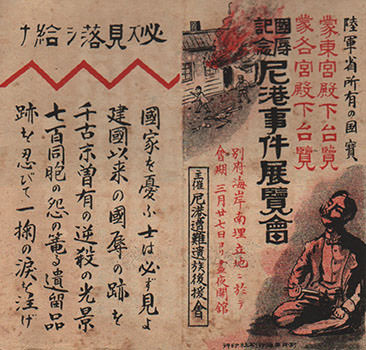 陸軍省所有の國寳
蒙東宮殿下台覧
蒙各宮殿下台覧
國辱記念
尼港事件展覽會
別府海岸南埋立地ニ於テ
會期 三月廿七日ヨリ晝夜開館
主催 尼港遭難遺族後援會
必ズ見落シ給ナ
國家を憂ふ士は必ず見よ
建國以来の國辱の跡を
千古未曽有の逆殺の光景
七百同胞の怨の篭る遺留品
跡を忍びて一掬の涙を注げ